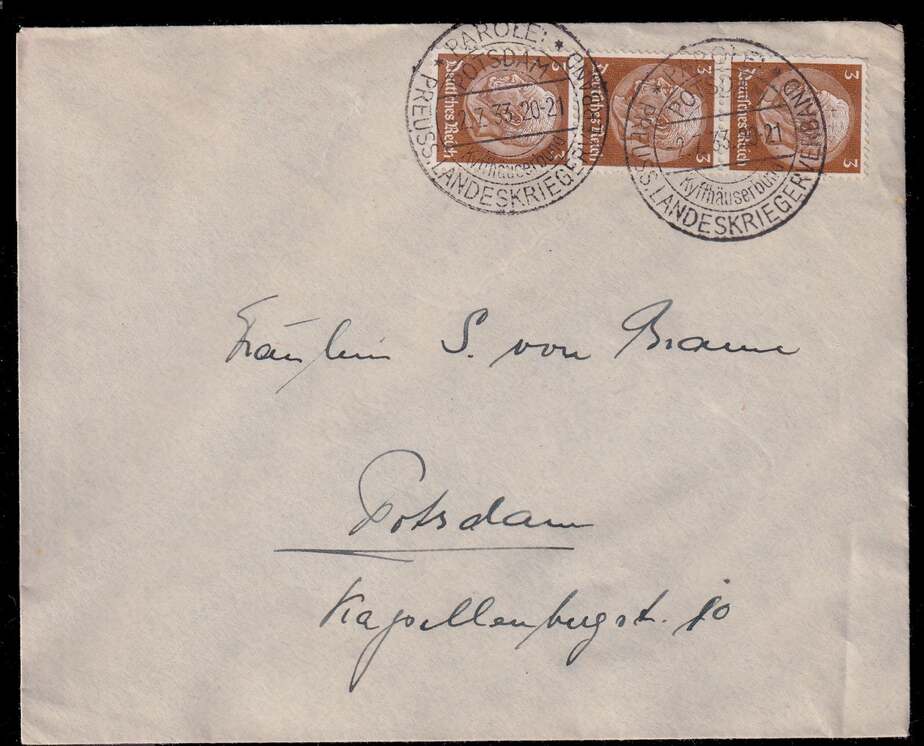 * PAROLE! *
POTSDAM
2.7.33.20-21
Kyffhäuserbund
PREUSS. LANDESKRIEGERVERBAND
3 Deutsches Reich 3
3 Deutsches Reich 3
3 Deutsches Reich 3
* PAROLE! *
POTSDAM
21
Kyffhäuserbund
PREUSS. LANDESKRIEGERVERBAND
Fräulein S. von
Potsdam
Kapellenbergst. 10